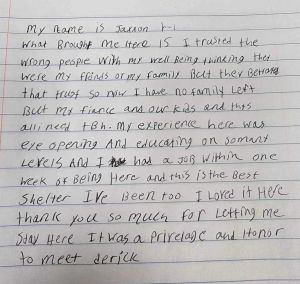 My name is Jaxson L-I
What Brought me Here IS I trusted the
wrong people with my well Being thinking they
were my friends or my family But they Betrayed
that trust so now I have no family left
But my fiance and our kids and thats
all i need tBh. my experience here was
eye opening And educating on somany
Levels And I had a JOB within one
week of Being Here and this is the Best
Shelter I've Been too I Loved it Here
thank you so much for Letting me
Stay Here It was A privelage and Honor
to meet derick